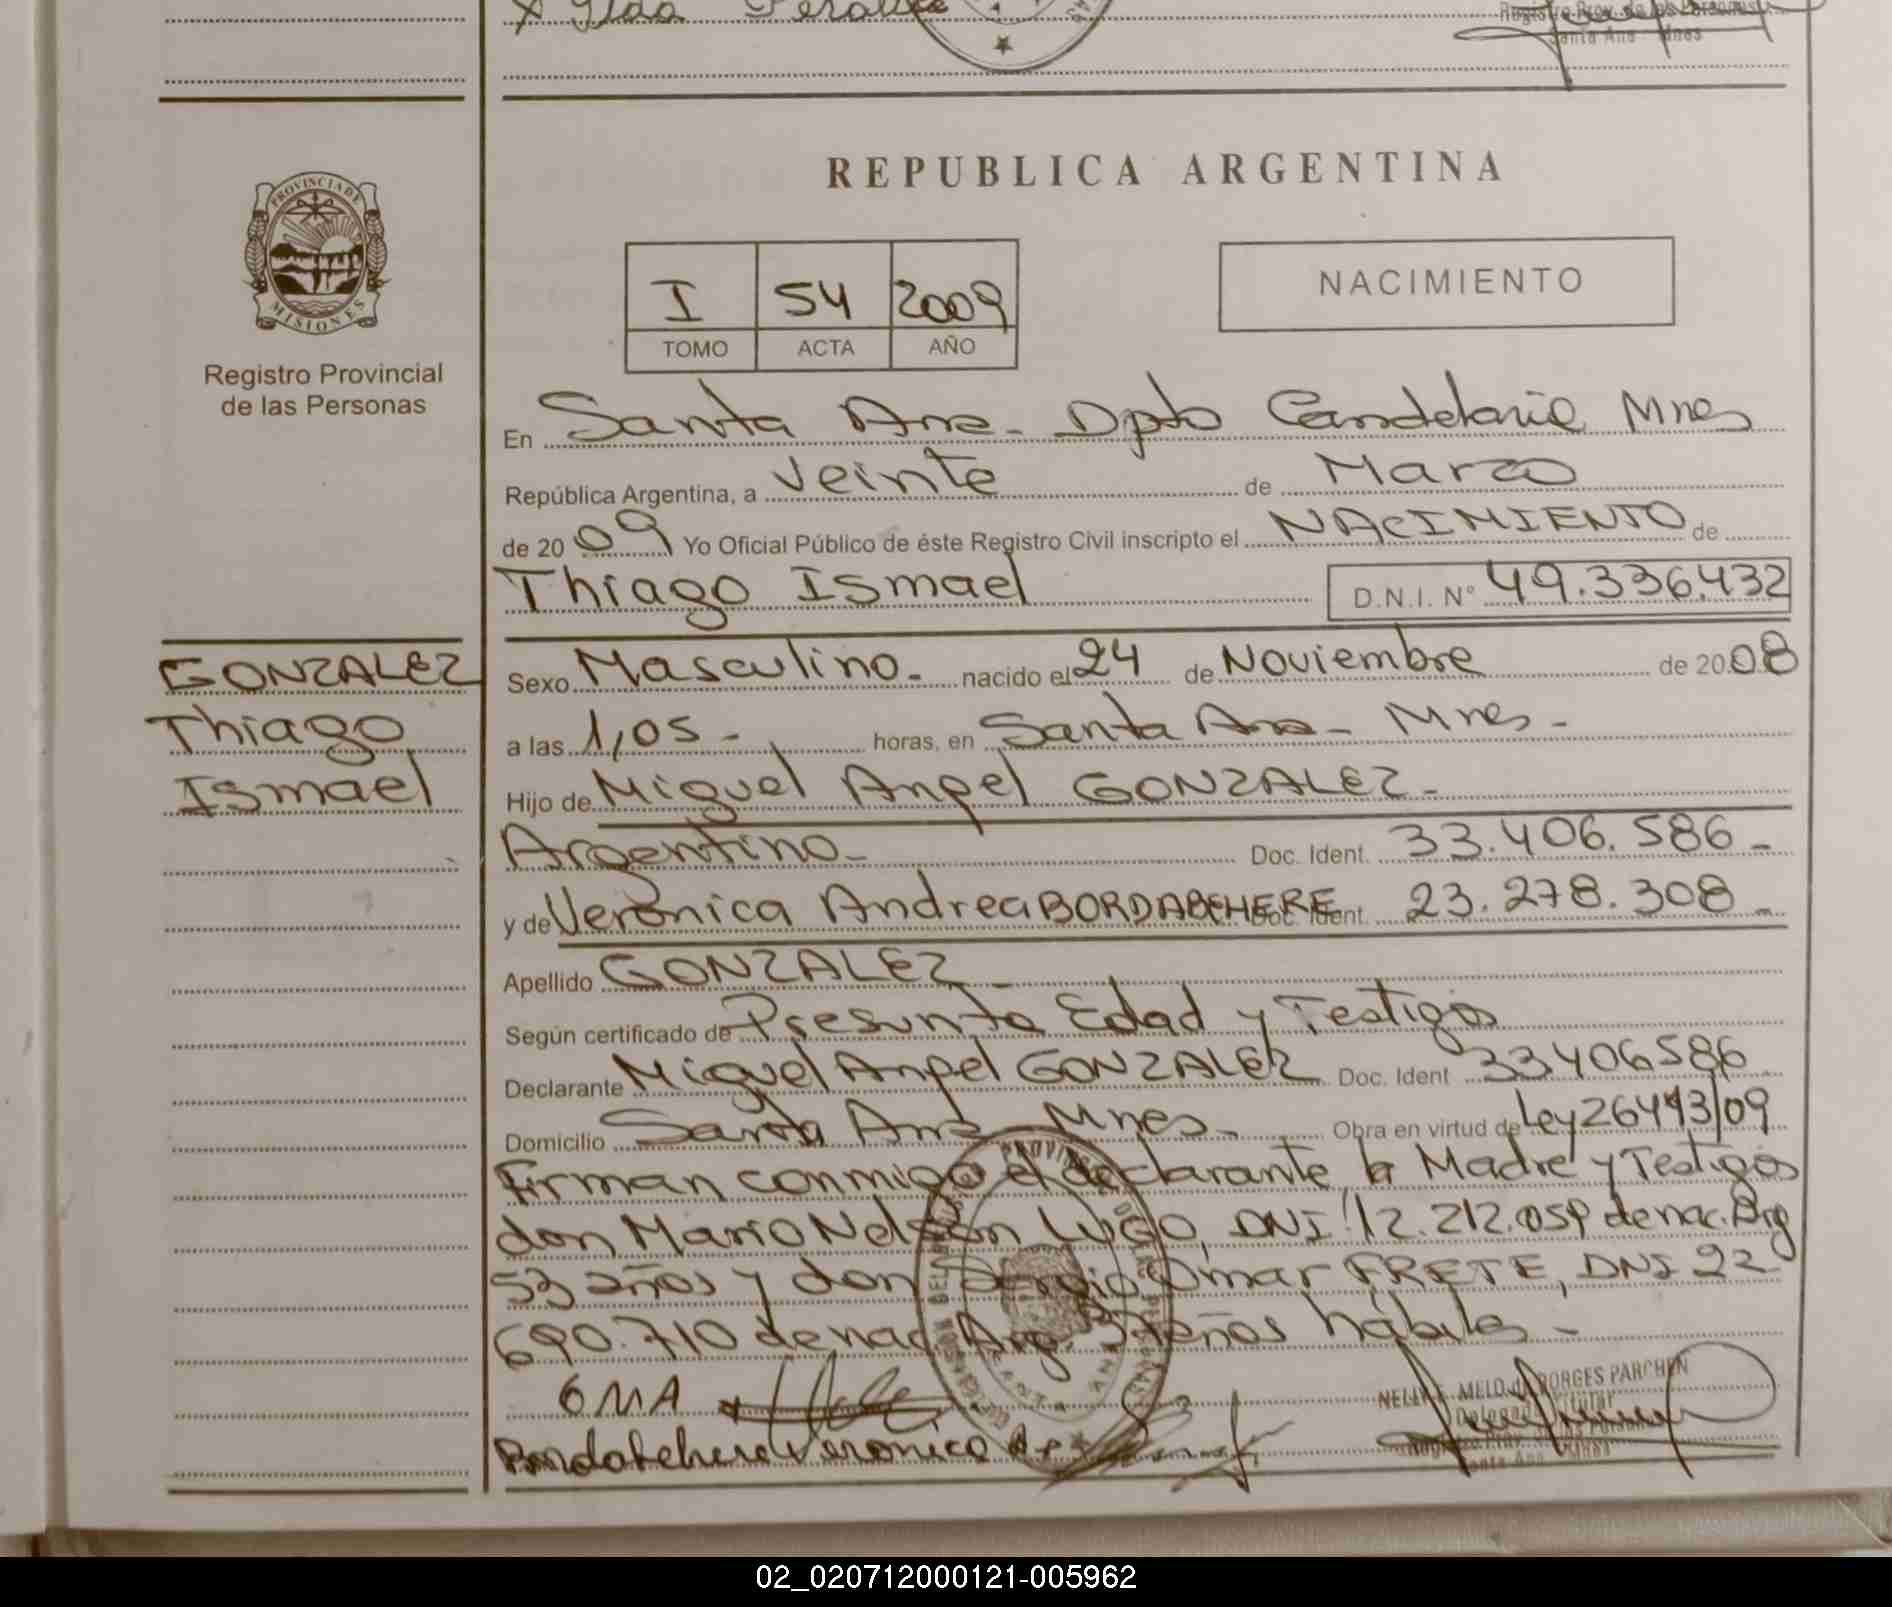 X Ilda Peralta
Registro Prov. de las Personas
Santa Ana - Mnes
PROVINCIA DE
MISIONES
Registro Provincial
de las Personas
REPUBLICA ARGENTINA
I 54 2009
TOMO ACTA AÑO
NACIMIENTO
En Santa Ana - Dpto Candelaria Mnes
República Argentina, a veinte de Marzo
de 20 09 Yo Oficial Público de éste Registro Civil inscripto el NACIMIENTO de
Thiago Ismael D.N.I. N° 49.336.432
GONZALEZ
Thiago
Ismael
Sexo Masculino - nacido el 24 de Noviembre de 20 08
a las 1,05 - horas, en Santa Ana - Mnes -
Hijo de Miguel Angel GONZALEZ -
Argentino - Doc. Ident. 33.406.586 -
y de Verónica Andrea BORDABEHERE Doc. Ident. 23.278.308 -
Apellido GONZALEZ
Según certificado de Presunta Edad y Testigos
Declarante Miguel Angel GONZALEZ Doc. Ident 33406586
Domicilio Santa Ana Mnes - Obra en virtud de Ley 26413/09
Firman conmigo el declarante, la Madre y Testigos
don Mario Nelson LUGO, DNI 12.212.059 de nac. Arg
53 años y don Sergio Omar FRETE, DNI 22
690.710 de nac. Arg. años hábiles -
GMA
Bordabehere Veronica A
NELLY E. MELO de BORGES PARCHEN
Delegada Titular
Registro Prov. de las Personas
Santa Ana - Mnes
02_020712000121-005962